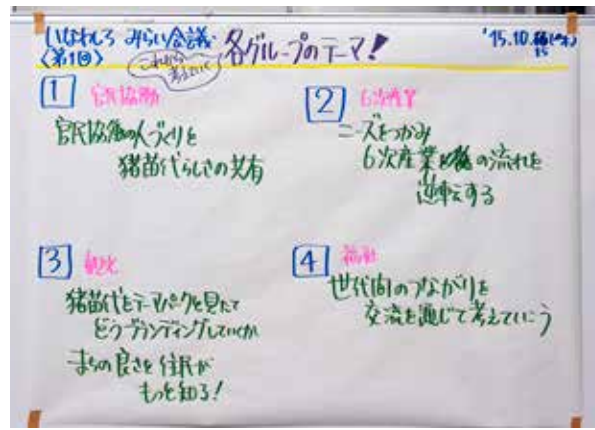 いなわしろ みらい会議
〈第1回〉
これから
考えていく
各グループのテーマ!
'15.10.15(木)
1 官民協働
官民協働の人づくりと
猪苗代らしさの共有
2 6次産業
ニーズをつかみ
6次産業の流れを
逆転する
3
猪苗代をテーマパークと見たて
どうブランディングしていくか
まちの良さを住民が
もっと知る!
4 福祉
世代間のつながりを
交流を通じて考えていこう